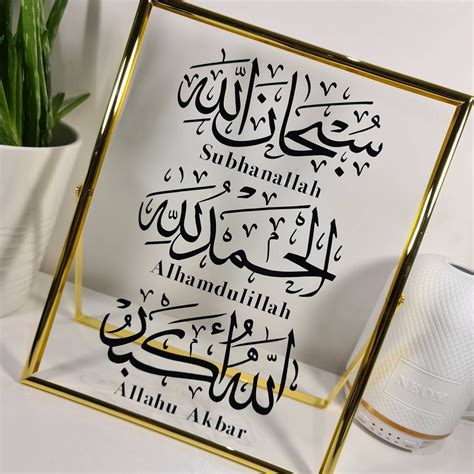 سبحان الله
Subhanallah
الحمد لله
Alhamdulillah
الله أكبر
Allahu Akbar
NEOM